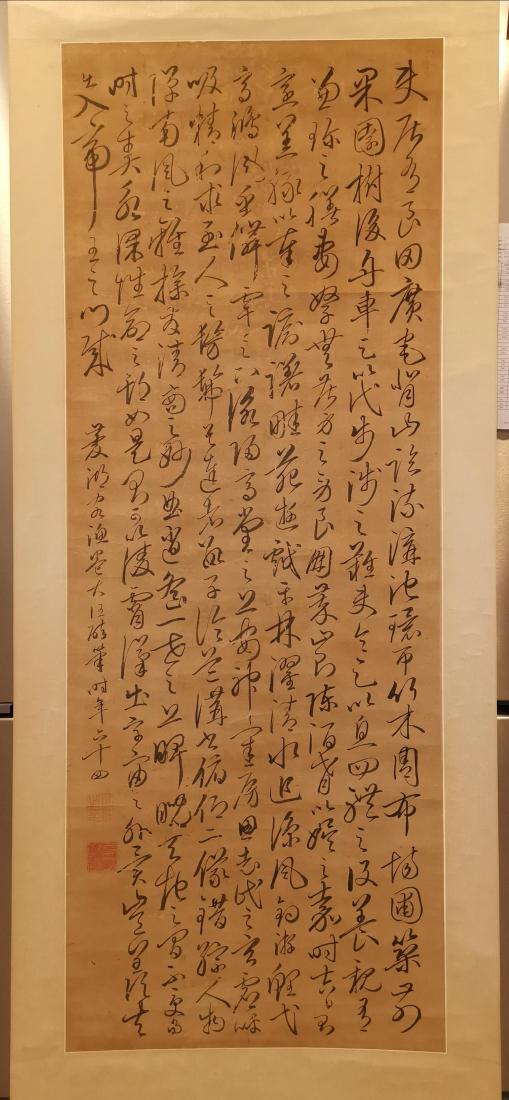 使居有良田廣宅背山臨流溝池環匝竹木周布場圃築前
果園樹後舟車足以代步涉之難使令足以息四體之役養親有
兼珍之膳妻孥無苦身之勞良朋萃止則陳酒肴以娛之嘉時吉日則
烹羔豚以奉之躊躇畦苑遊戲平林濯清水追涼風釣游鯉弋
高鴻風乎舞雩之下詠歸高堂之上安神閨房思老氏之玄虛呼
吸精和求至人之髣髴與達者數子論道講書俯仰二儀錯綜人物
彈南風之雅操發清商之妙曲逍遙一世之上睥睨天地之間不受當
時之責永保性命之期如是則可以凌霄漢出宇宙之外矣豈羨夫
出入帝王之門哉
菱湖老漁卷大任醉筆時年六十四